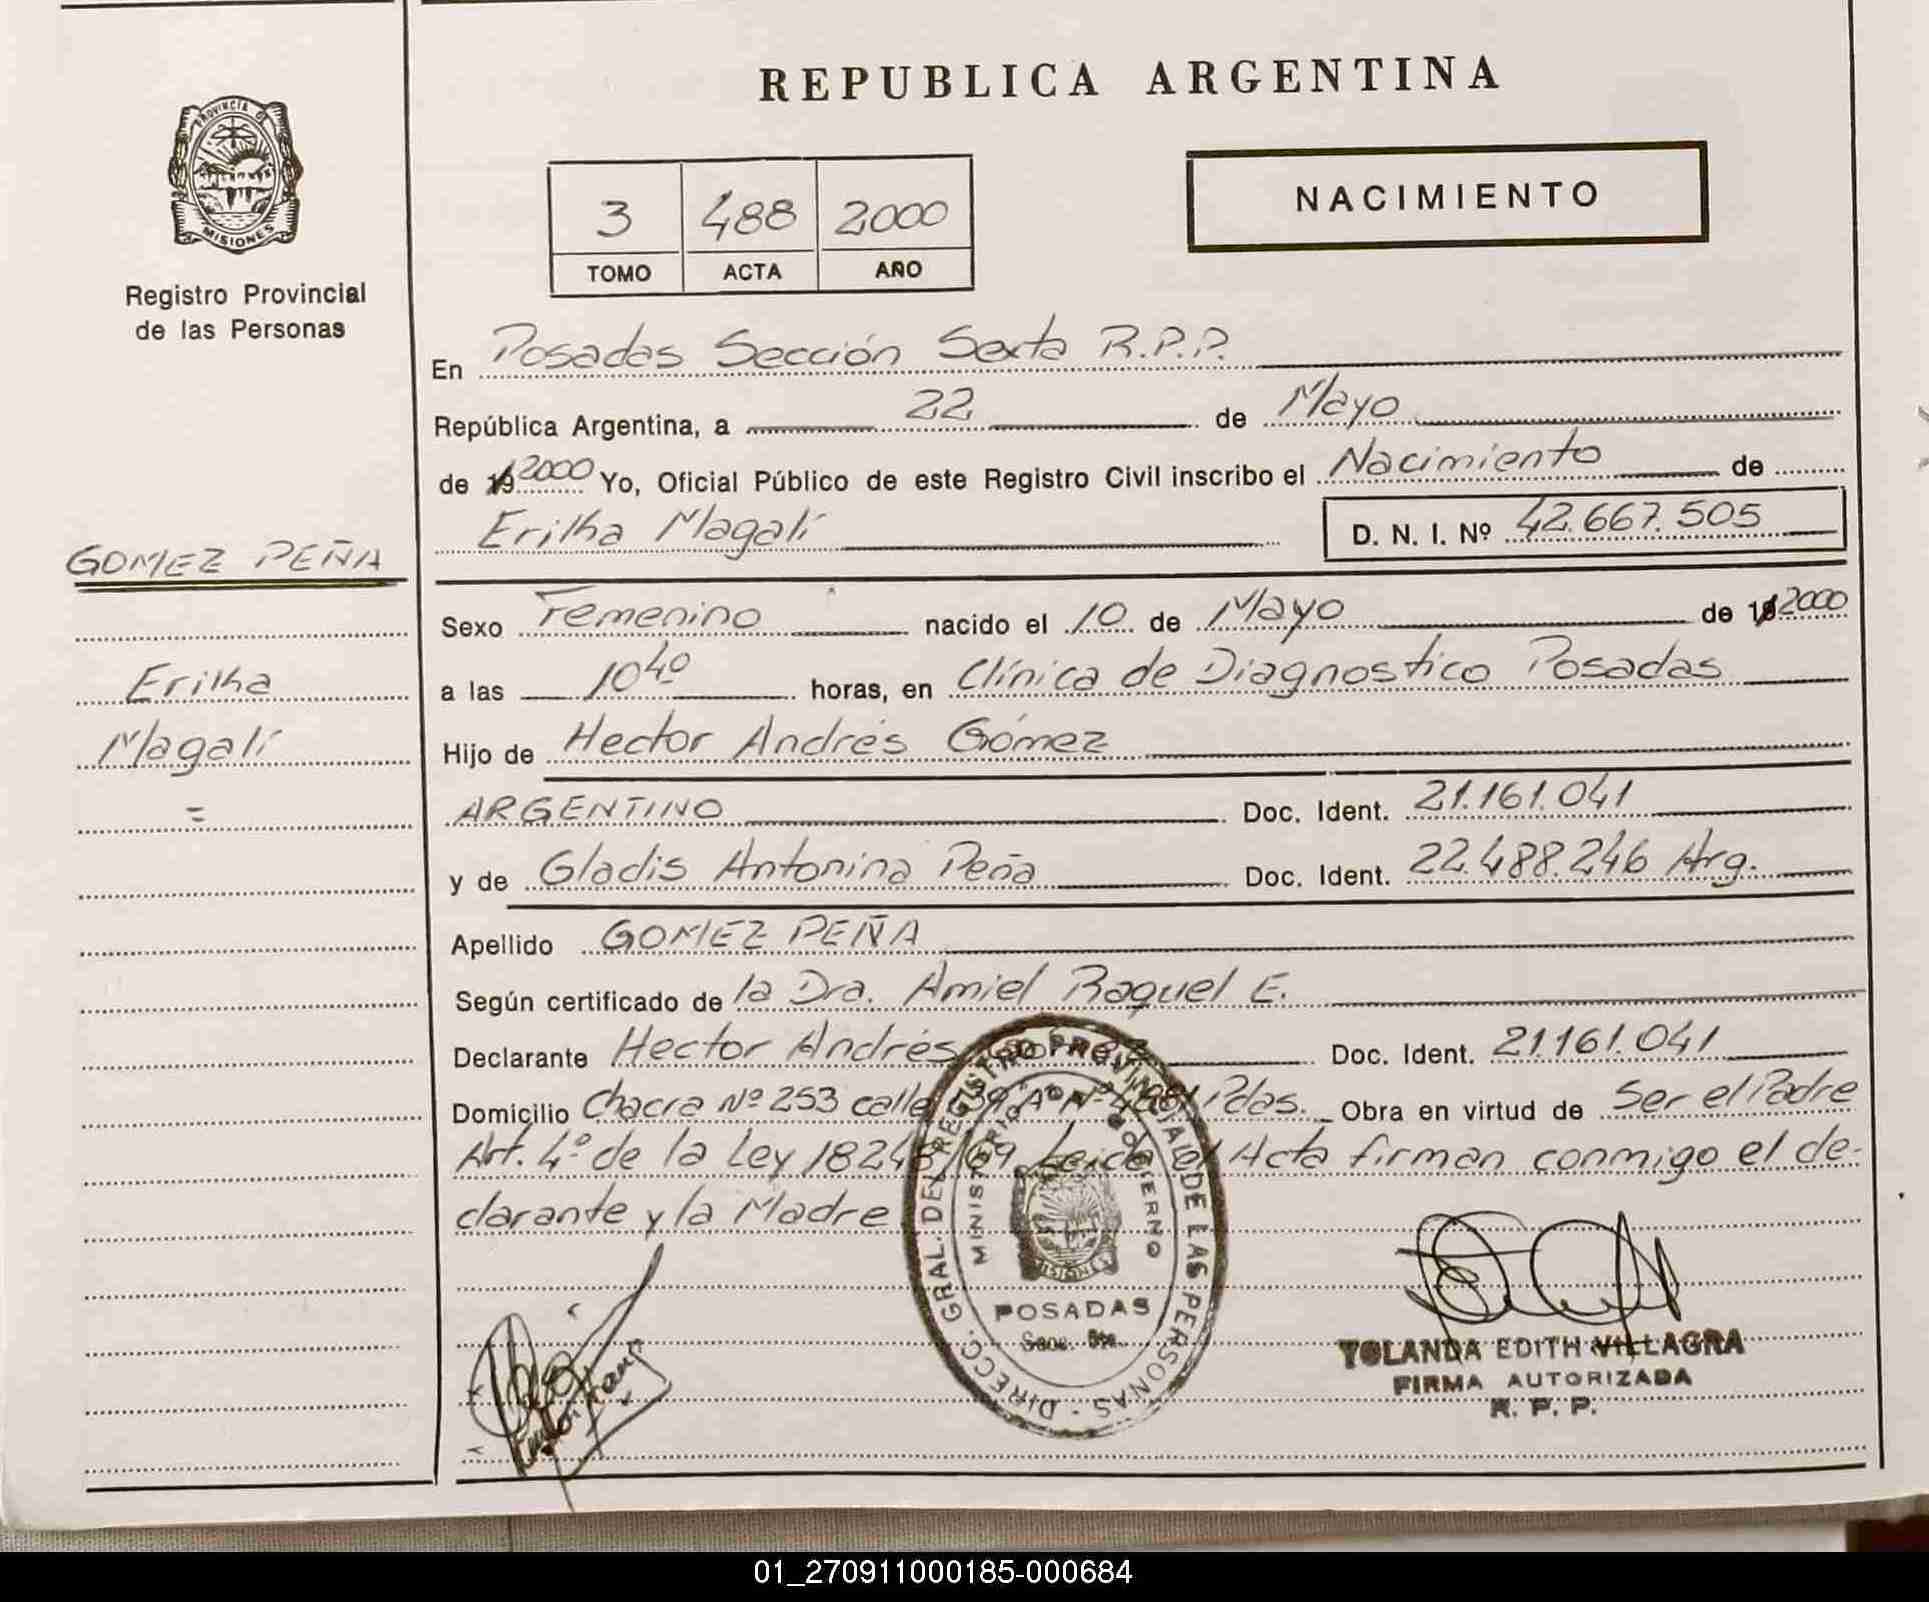 REPUBLICA ARGENTINA
PROVINCIA DE
MISIONES
Registro Provincial
de las Personas
3 488 2000
TOMO ACTA AÑO
NACIMIENTO
En Posadas Sección Sexta R.P.P.
República Argentina, a 22 de Mayo
de 19 2000 Yo, Oficial Público de este Registro Civil inscribo el Nacimiento de
Erilha Magalí D. N. I. Nº 42.667.505
GOMEZ PEÑA
Erilha
Magalí
=
Sexo Femenino nacido el 10 de Mayo de 19 2000
a las 10 40 horas, en Clínica de Diagnostico Posadas
Hijo de Hector Andrés Gómez
ARGENTINO Doc. Ident. 21.161.041
y de Gladis Antonina Peña Doc. Ident. 22.488.246 Arg.
Apellido GOMEZ PEÑA
Según certificado de la Dra. Amiel Raquel E.
Declarante Hector Andrés Doc. Ident. 21.161.041
Domicilio Chacra Nº 253 calle 139 "A" Nº Pdas. Obra en virtud de Ser el Padre
Art. 4º de la Ley 18248/69 Leida Acta firman conmigo el de-
clarante y la Madre
DIRECC. GRAL. DEL REGISTRO PROVINCIAL DE LAS PERSONAS -
MINISTERIO DE GOBIERNO
MISIONES
POSADAS
Secc. 6ta.
YOLANDA EDITH VILLAGRA
FIRMA AUTORIZADA
R. P. P.
01_270911000185-000684